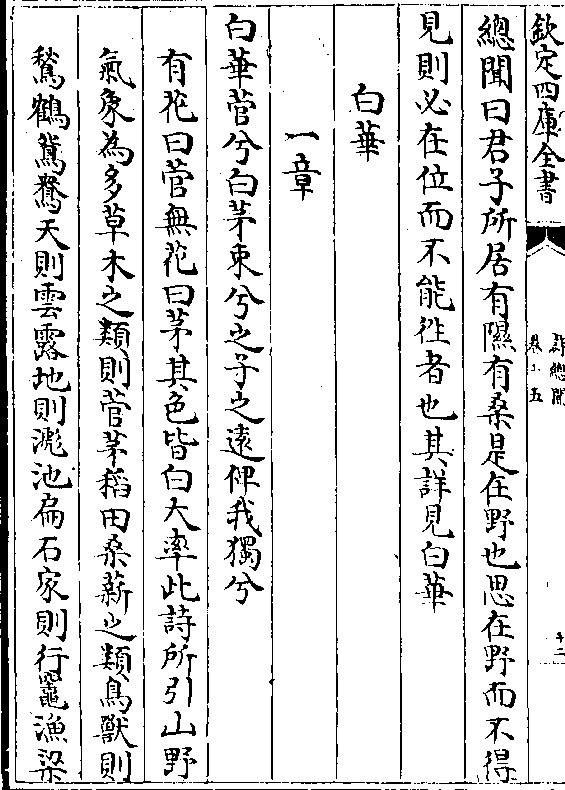 欽定四庫全書
詩總聞
卷十五
十二
總聞曰君子所居有隰有桑是在野也思在野而不得
見則必在位而不能徃者也其詳見白華
白華
一章
白華菅兮白茅束兮之子之遠俾我獨兮
有花曰菅無花曰茅其色皆白大率此詩所引山野
氣象為多草木之類則菅茅稻田桑薪之類鳥獸則
鶖鶴鴛鴦天則雲露地則滮池扁石家則行竈漁梁